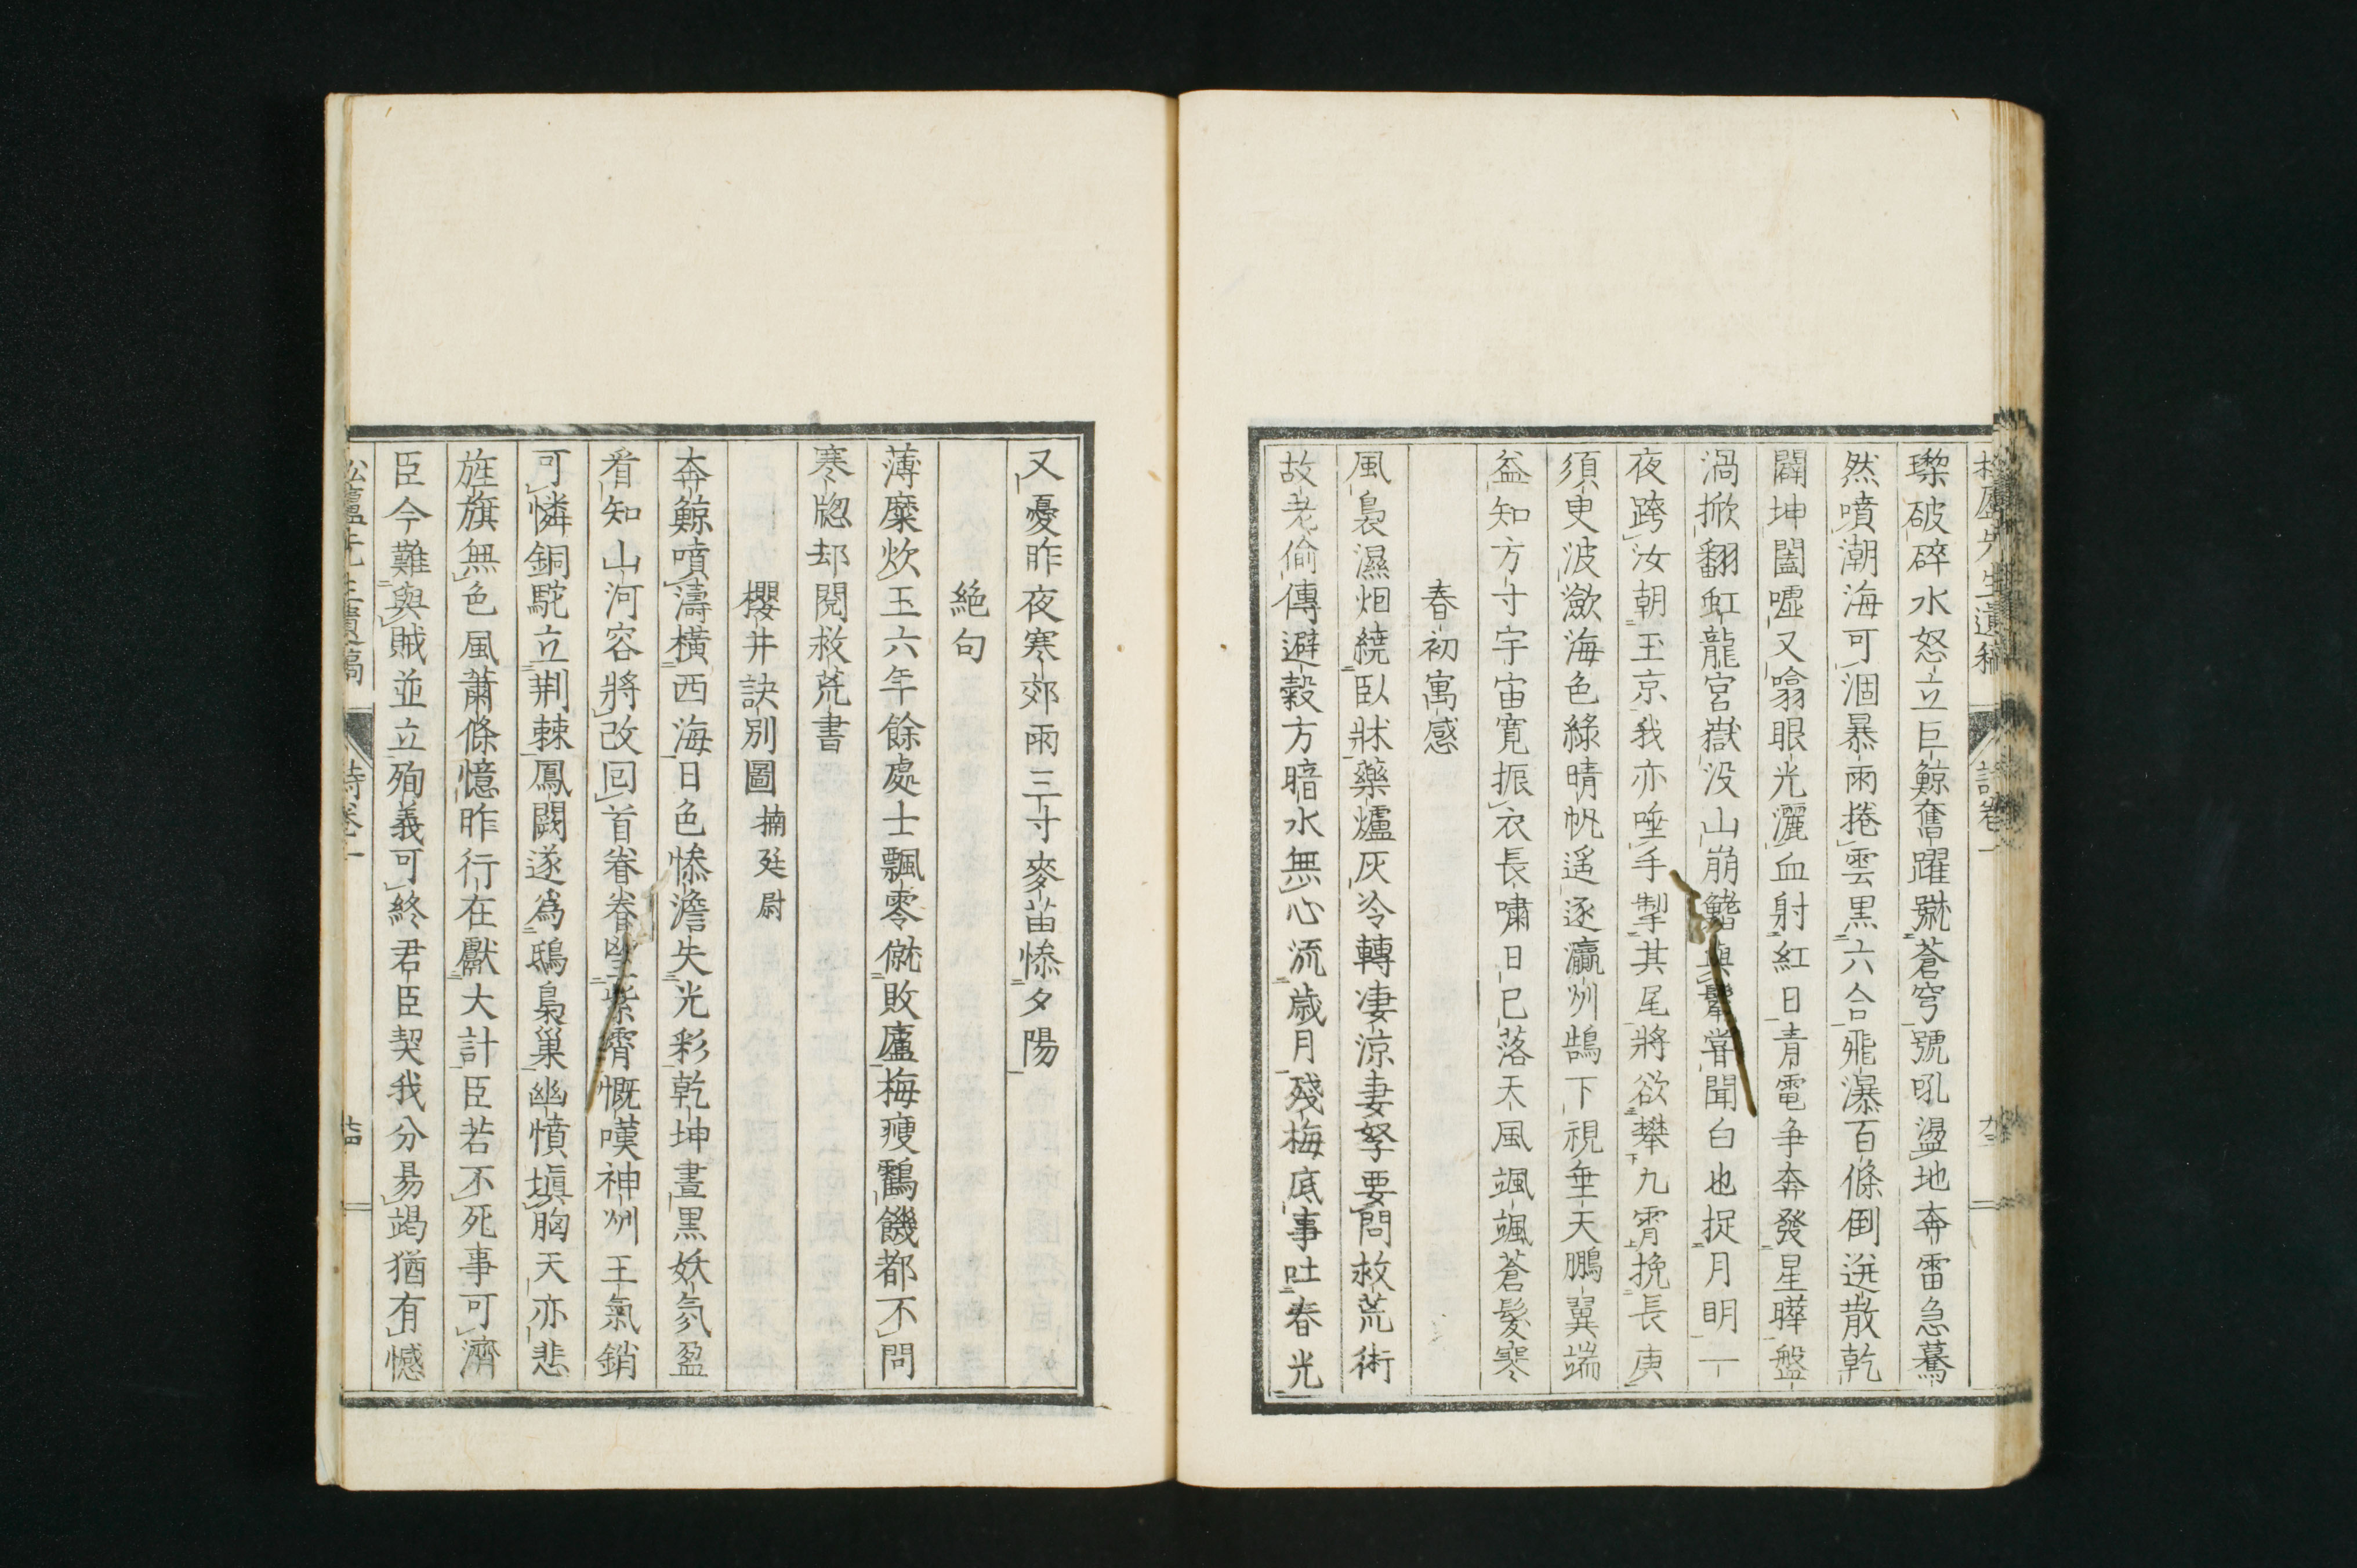 松廬先生遺稿 詩卷一
璨破碎水怒立巨鯨奮躍蹴蒼穹號吼盪地奔雷急驀
然噴潮海可涸暴雨捲雲黑六合飛瀑百條倒迸散乾
闢坤闔噓又噏眼光灑血射紅日青電争奔發星曄盤
渦掀翻虹龍宮嶽没山崩鰭與鬣甞聞白也捉月明一
夜跨汝朝玉京我亦唾手掣其尾將欲攀九霄挽長庚
須臾波歛海色綠晴帆遥逐瀛州鵠下視垂天鵬翼端
益知方寸宇宙寛振衣長嘯日已落天風颯颯蒼髮寒
春初寓感
風裊濕烟繞臥牀藥爐灰冷轉凄涼妻孥要問救荒術
故老偷傳避穀方暗水無心流歳月殘梅底事吐春光
又憂昨夜寒郊雨三寸麥苗惨夕陽
絶句
薄糜炊玉六年餘處士飄零僦敗廬梅痩鶴饑都不問
寒牕却閱救荒書
櫻井訣別圖 楠廷尉
奔鯨噴濤橫西海日色惨澹失光彩乾坤晝黒妖氛盈
看知山河容將改回首眷眷望紫霄慨嘆神州王氣銷
可憐銅駝立荆棘鳳闕遂爲鴟梟巢幽憤塡胸天亦悲
旌旗無色風蕭條憶昨行在獻大計臣若不死事可濟
臣今難與賊並立殉義可終君臣契我分易竭猶有憾
松廬先生遺稿 詩卷一 十四